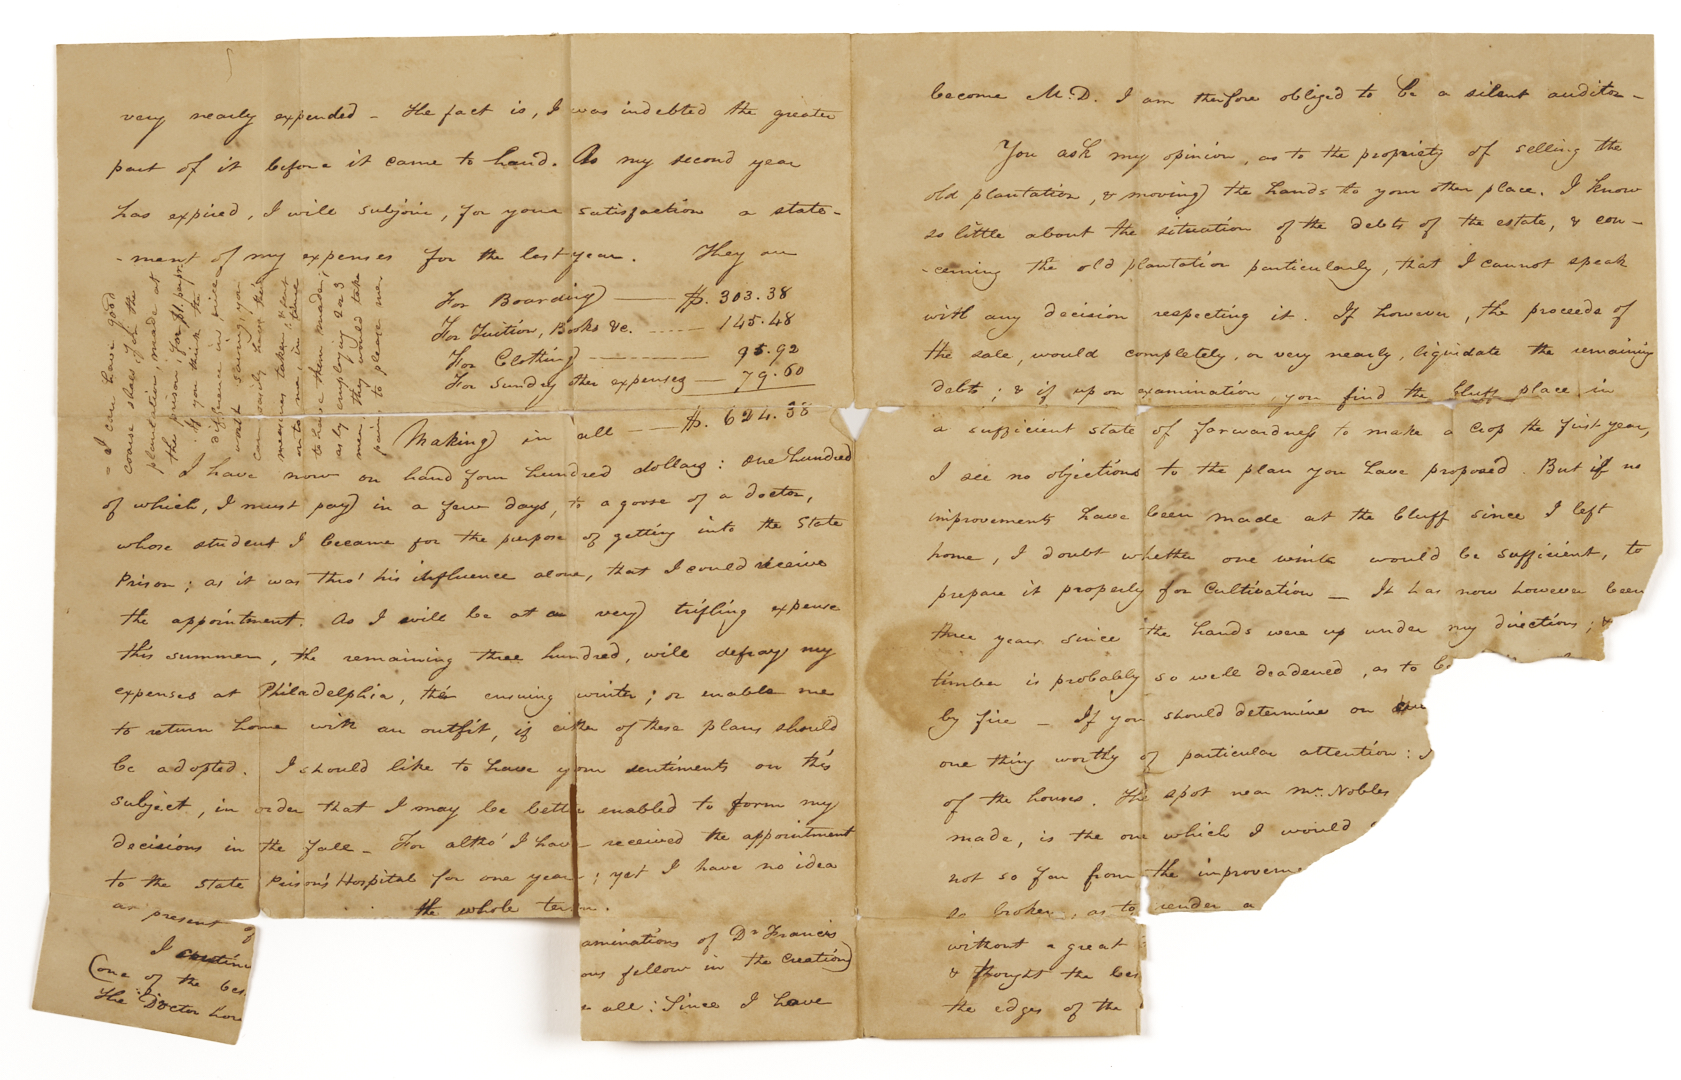 very nearly expended - The fact is, I was indebted the greater
part of it before it came to hand. As my second year
has expired, I will subjoin, for your satisfaction a state-
-ment of my expenses for the last year. They are
For Boarding —— $. 303.38
For Tuition, Books &c. ---- 145.48
For Clothing ---------- 95.92
For Sundry other expenses — 79.60
Making in all —— $. 624.38
I have now on hand four hundred dollars: One hundred
of which, I must pay in a few days, to a goose of a doctor,
whose student I became for the purpose of getting into the State
Prison; as it was thro' his influence alone, that I could receive
the appointment. As I will be at a very trifling expense
this summer, the remaining three hundred, will defray my
expenses at Philadelphia, the ensuing winter; or enable me
to return home with an outfit, if either of these plans should
be adopted. I should like to have your sentiments on this
subject, in order that I may be better enabled to form my
decisions in the fall - For altho' I have received the appointment
to the State Prison's Hospital for one year; yet I have no idea
at present of the whole term.
I continu aminations of Dr Francis
(one of the bes ous fellow in the Creation)
The Doctor hon all: Since I have
- I can have good
coarse shoes, for the
plantation, made at
the prison, for $1. pr pair
If you think the
difference in price
worth saving, you
can easily have their
measures taken & sent
on to me, in time
to have them made;
as by employing 2 or 3
men, they would take
pain, to please me.
become M.D. I am therefore obliged to be a silent auditor -
You ask my opinion, as to the propriety of selling the
old plantation, & moving the hands to your other place. I know
so little about the situation of the debts of the estate, & con-
-cerning the old plantation particularly, that I cannot speak
with any decision respecting it. If however, the proceeds of
the sale, would completely, or very nearly, liquidate the remaining
debts; & if upon examination, you find the bluff place in
a sufficient state of forwardness to make a crop the first year,
I see no objections to the plan you have proposed. But if no
improvements have been made at the bluff since I left
home, I doubt whether one winter would be sufficient, to
prepare it properly for cultivation — It has now however been
three years since the hands were up under my directions; &
timber is probably so well deadened, as to b
by fire - If you should determine on
one thing worthy of particular attention:
of the houses. The spot near Mr. Nobles
made, is the one which I would
not so far from the improveme
so broken, as to render a
without a great
& thought the bes
the edges of the